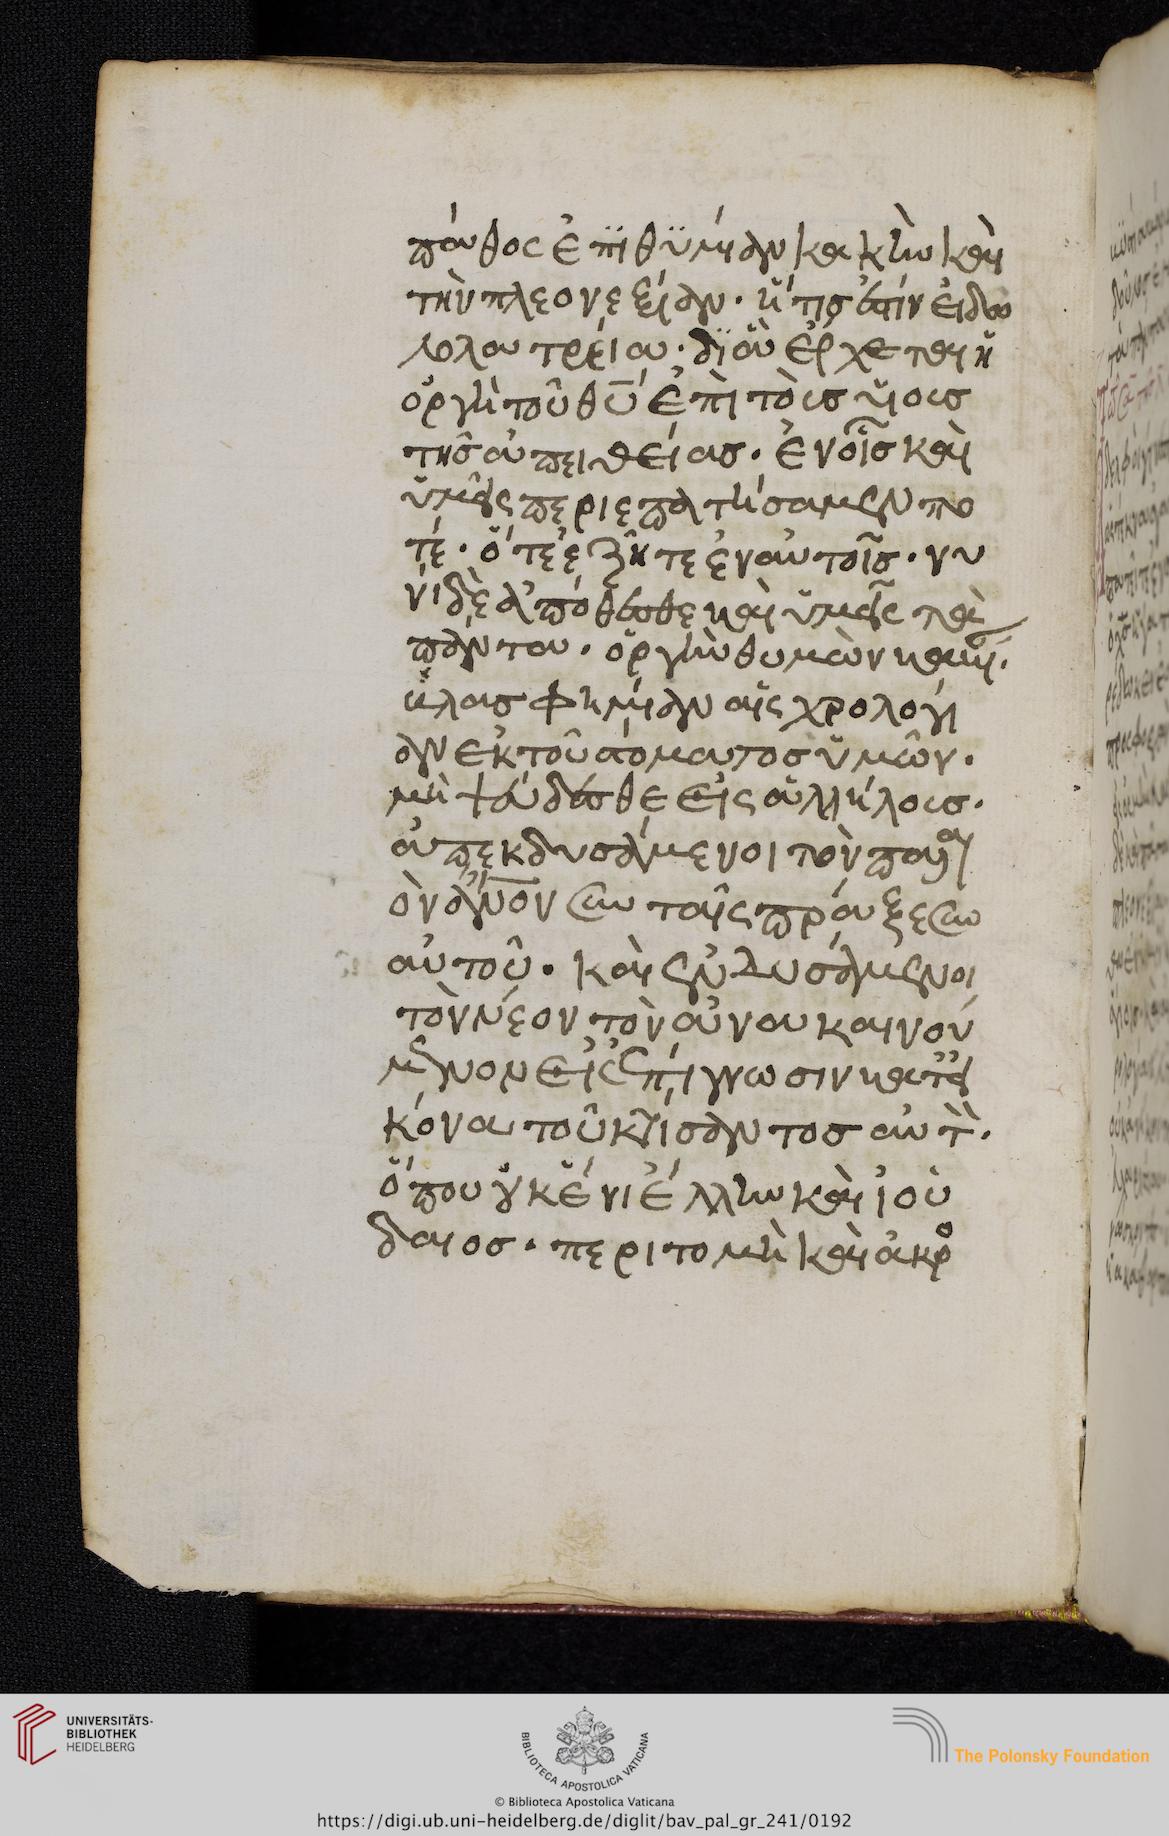 πάθος ἐπϊθϋμίαν κακὴν καὶ
τὴν πλεονεξίαν · ἥτις ἐστὶν εἰδω
λολατρεία · δϊ ἃ ἔρχεται ἡ
ὀργὴ τοῦ θ̅υ̅ ἐπὶ τοὶς υἱοις
τῆς ἀπειθείας · ἐν οἷς καὶ
ὑμεῖς περιεπατήσαμεν πο
τέ · ὅτε ἐζῆτε ἐν αὐτοῖς · νυ
νὶ δὲ ἀπόθεσθε καὶ ὑμεῖς τὰ
πάντα · ὀργὴν θυμὸν κακίαν ·
βλασφημίαν αἰσχρολογί
αν ἐκ τοῦ στόματος ὑμῶν ·
μὴ ψεύδεσθε εἰς ἀλλήλους ·
ἀπεκδυσάμενοι τὸν παλαι
ὸν ἄν̅ο̅ν σὺν ταῖς πράξεσιν
αὐτοῦ · καὶ ἐνδυσάμενοι
τὸν νέον τὸν ἀνακαινού
μενον εἰς ἐπίγνωσιν κατ' εἰ
κόνα τοῦ κτίσαντος αὐτὸν ·
ὅπου οὐκ ἔνι ἕλλην καὶ ἰου
δαιος · περιτομὴ καὶ ἀκρο
UNIVERSITÄTS-
BIBLIOTHEK
HEIDELBERG
BIBLIOTECA APOSTOLICA VATICANA
The Polonsky Foundation
© Biblioteca Apostolica Vaticana
https://digi.ub.uni-heidelberg.de/diglit/bav_pal_gr_241/0192